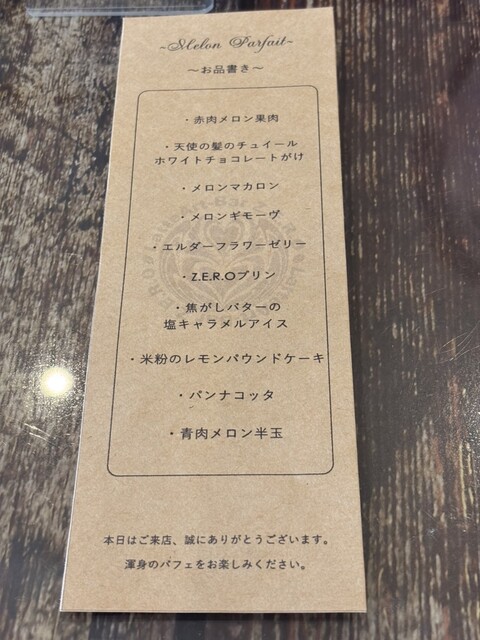 ~Melon Parfait~
～お品書き～
・赤肉メロン果肉
・天使の髪のチュイール
ホワイトチョコレートがけ
・メロンマカロン
・メロンギモーヴ
・エルダーフラワーゼリー
・Z.E.R.Oプリン
・焦がしバターの
塩キャラメルアイス
・米粉のレモンパウンドケーキ
・パンナコッタ
・青肉メロン半玉
本日はご来店、誠にありがとうございます。
渾身のパフェをお楽しみください。